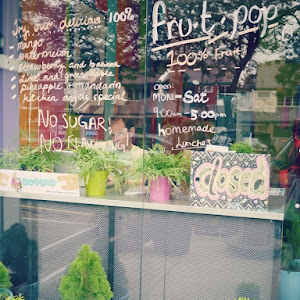 Try our delicious 100%
• mango
• watermelon
• strawberry and banana
• lime and pineapple
• pineapple & mandarin
• kitchen angels special
NO SUGAR!
NO KIDDING!
fruit pop
100% fruit
open:
MON - Sat
9:00am - 5:00pm
homemade
lunches
closed